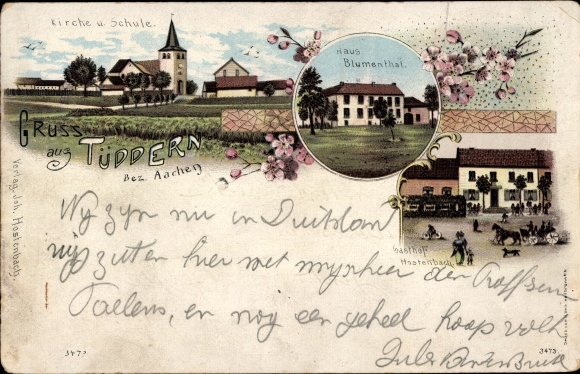 Kirche u. Schule.
Haus
Blumenthal.
Gruss
aus Tüddern
Bez. Aachen
Verlag Joh. Hostenbach.
Gasthof
Hostenbach
Wij zyn nu in Duitsland
wij zitten hier met mynheer den
Taelens, en nog een geheel hoop volk
Jules
3473
3473